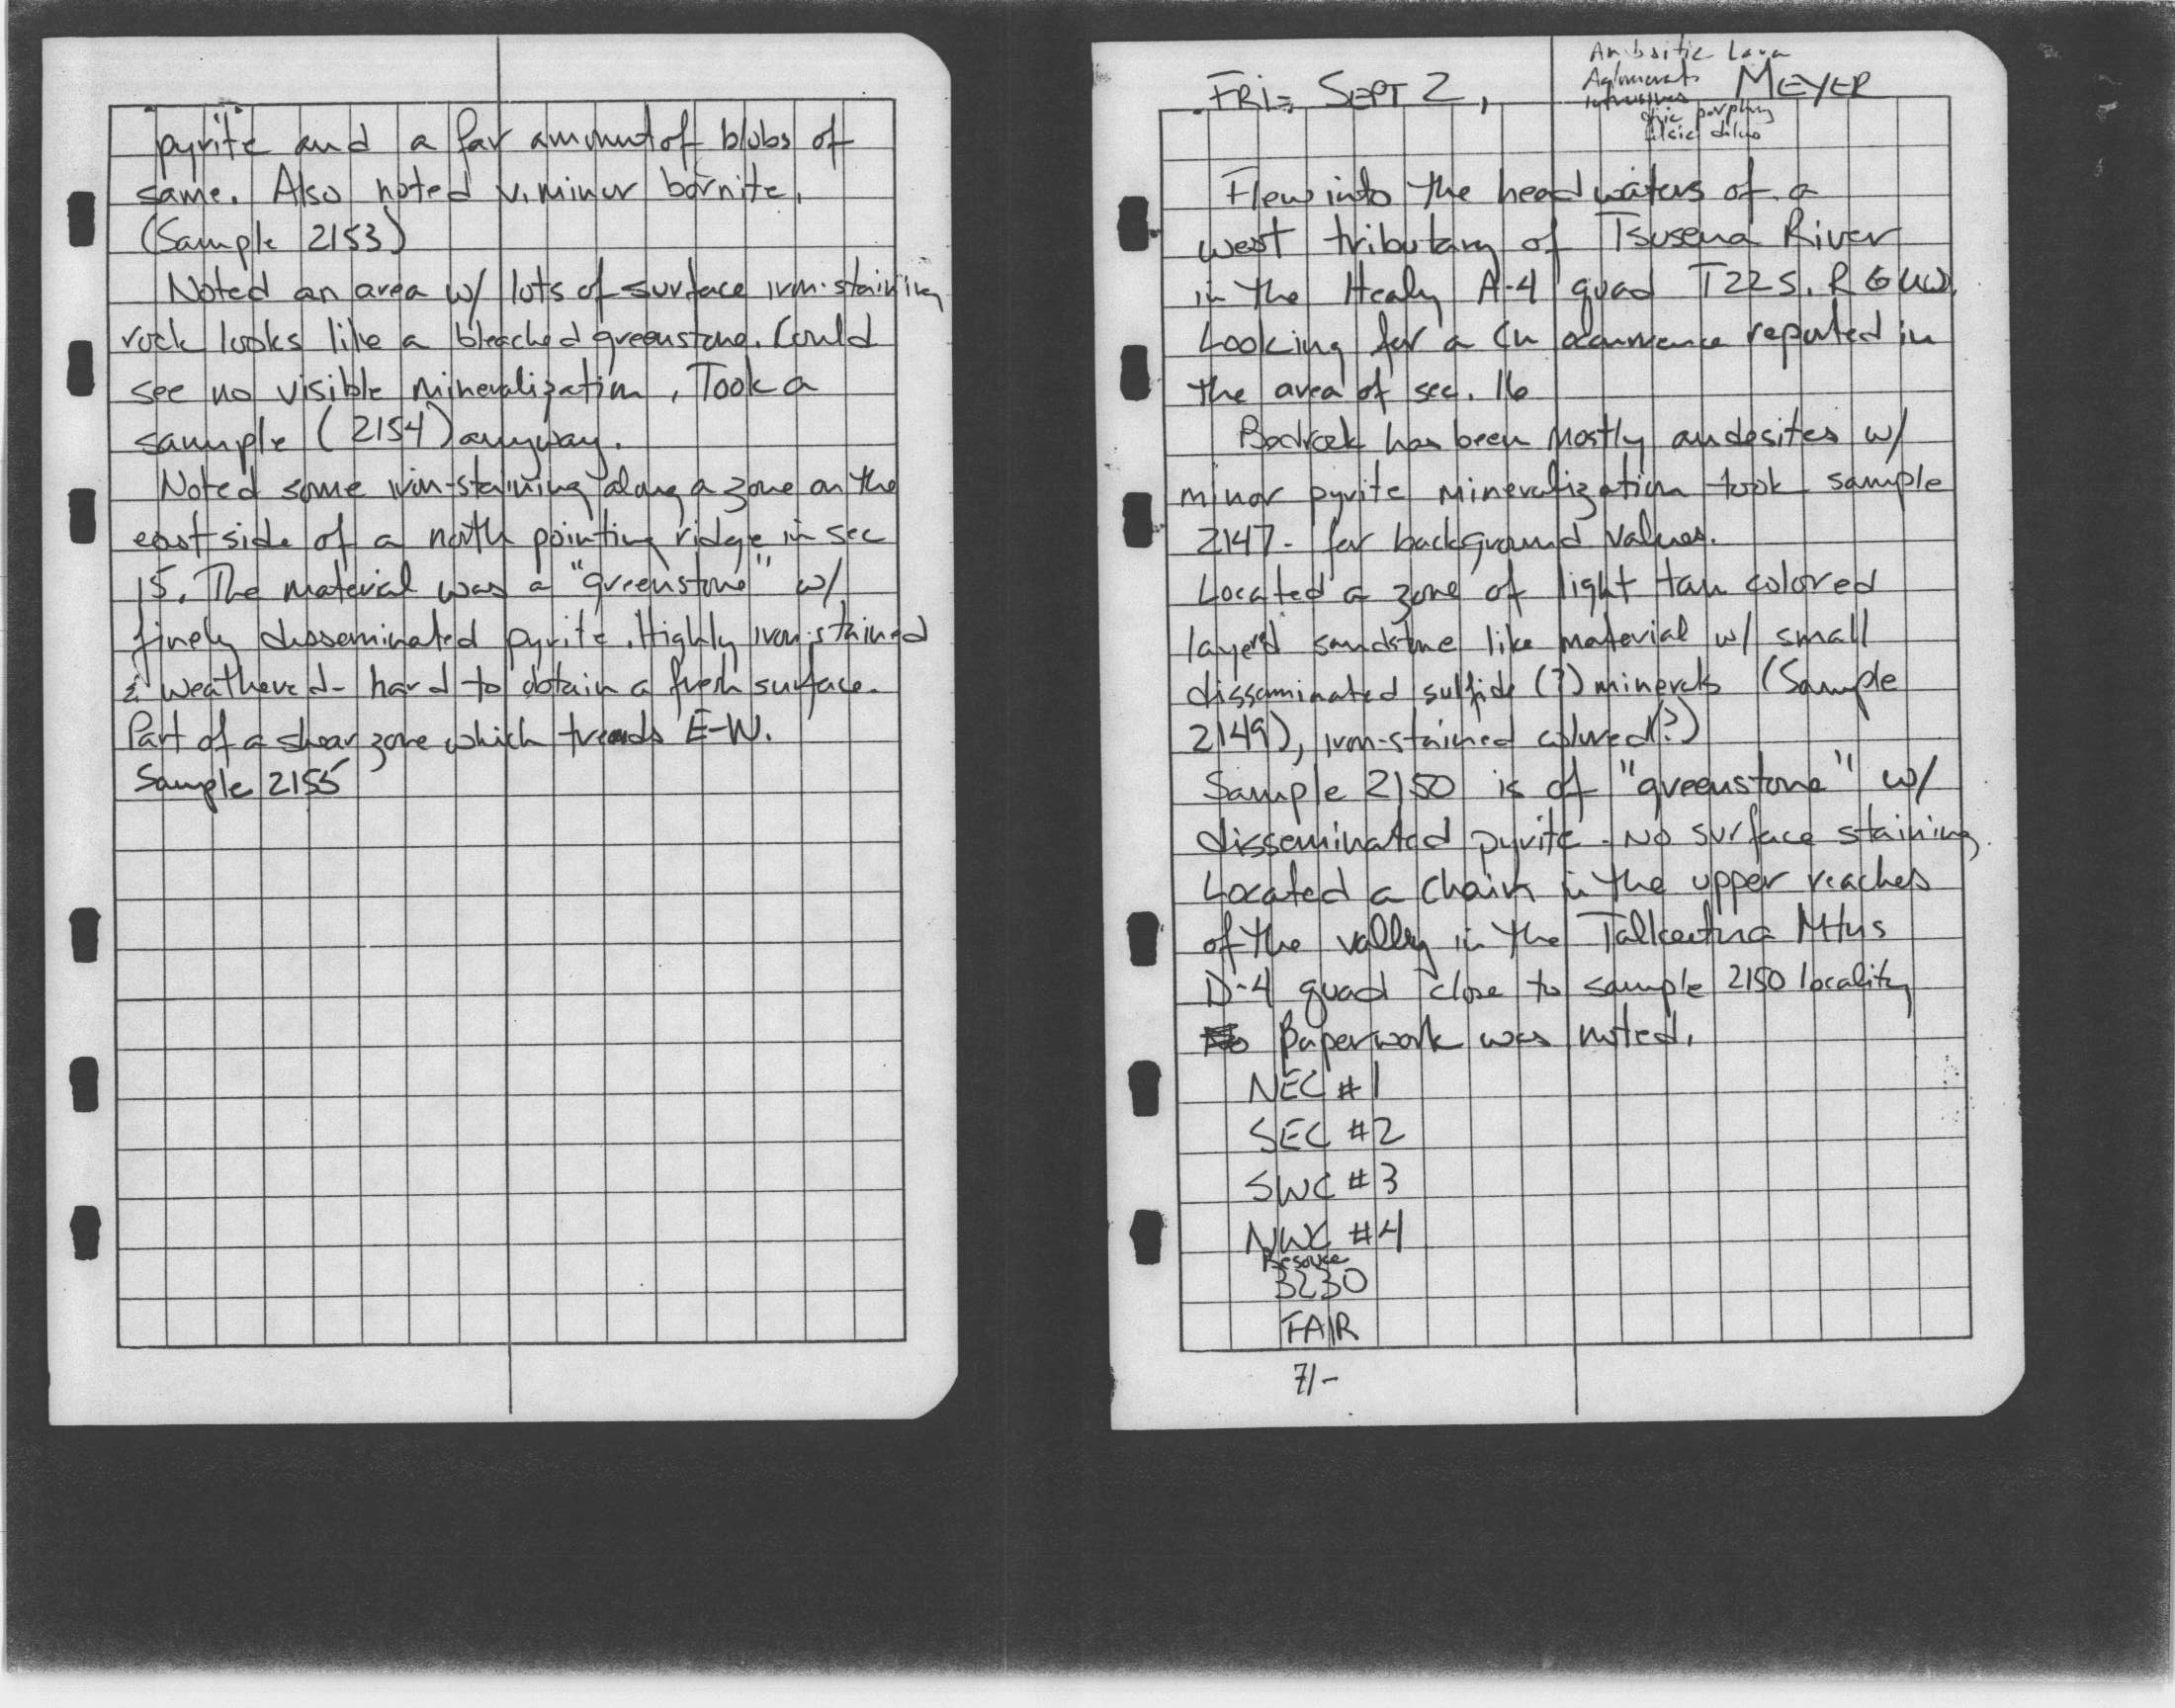 pyrite and a far amount of blobs of
same. Also noted v. minor bornite.
(Sample 2153)
Noted an area w/ lots of surface iron-staining
rock looks like a bleached greenstone. Could
see no visible mineralization. Took a
sample (2154) anyway.
Noted some iron-staining along a zone on the
east side of a north pointing ridge in sec
15. The material was a "greenstone" w/
finely disseminated pyrite. Highly iron-stained
& weathered - hard to obtain a fresh surface.
Part of a shear zone which trends E-W.
Sample 2155
Lava
FRI - SEPT 2, MEYER
intrusives
porphry
Flew into the headwaters of a
west tributary of Tsusena River
in the Healy A-4 quad T22S, R6W.
Looking for a Cu occurrence reported in
the area of sec. 16
Bedrock has been mostly andesites w/
minor pyrite mineralization took sample
2147 - for background values.
Located a zone of light tan colored
layer'd sandstone like material w/ small
disseminated sulfide (?) minerals (Sample
2149), iron-stained colored(?)
Sample 2150 is of "greenstone" w/
disseminated pyrite - No surface staining
Located a claim in the upper reaches
of the valley in the Talkeetna Mtns
D-4 quad close to sample 2150 locality
Paperwork was noted.
NEC #1
SEC #2
SWC #3
NWC #4
Resource
3230
FAIR
71-